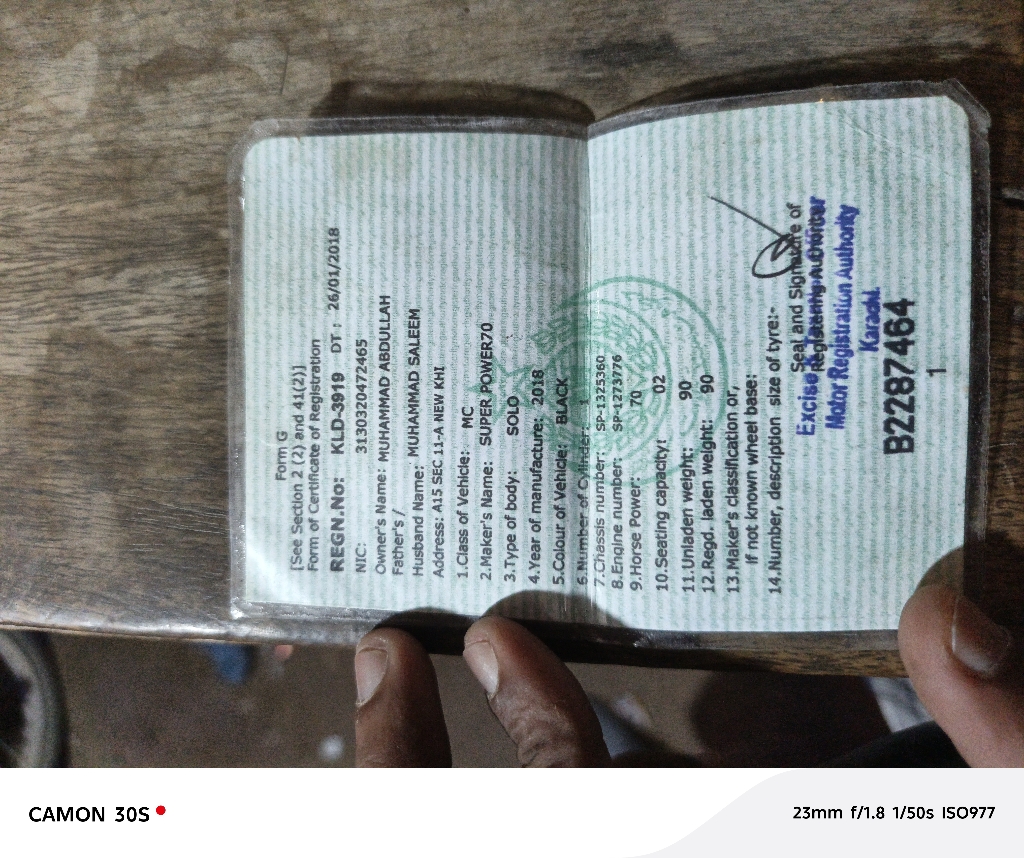 Form G
[See Section 2 (2) and 41(2)]
Form of Certificate of Registration
REGN.No: KLD-3919 DT : 26/01/2018
NIC: 3130320472465
Owner's Name: MUHAMMAD ABDULLAH
Father's /
Husband Name: MUHAMMAD SALEEM
Address: A15 SEC 11-A NEW KHI
1.Class of Vehicle: MC
2.Maker's Name: SUPER POWER70
3.Type of body: SOLO
4.Year of manufacture: 2018
5.Colour of Vehicle: BLACK
6.Number of Cylinder: 1
7.Chassis number: SP-1325360
8.Engine number: SP-1273776
9.Horse Power: 70
10.Seating capacity: 02
11.Unladen weight: 90
12.Regd. laden weight: 90
13.Maker's classification or,
if not known wheel base:
14.Number, description size of tyre:-
Seal and Signature of
Registering Authority
Excise & Taxation Officer
Motor Registration Authority
Karachi.
B2287464
1
CAMON 30S
23mm f/1.8 1/50s ISO977